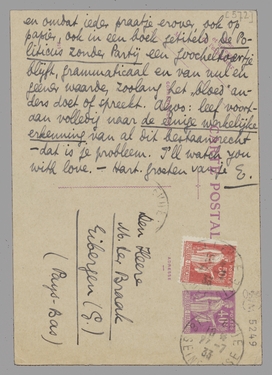 en omdat ieder praatje erover, ook op
papier, ook in een boek getiteld: De Po-
liticus zonder Partij een goocheltoertje
blijft, grammaticaal en van nul en
geener waarde, zoolang het „bloed" an-
ders doet of spreekt. Alzoo: leef voort-
aan volledig naar de eenige werkelijke
erkenning van al dit
– dat is je probleem. I'll watch you
with love. – Hart. groeten van je E.
Den Heere
M. ter Braak
Eibergen (G.)
(Pays-Bas)
POSTAL